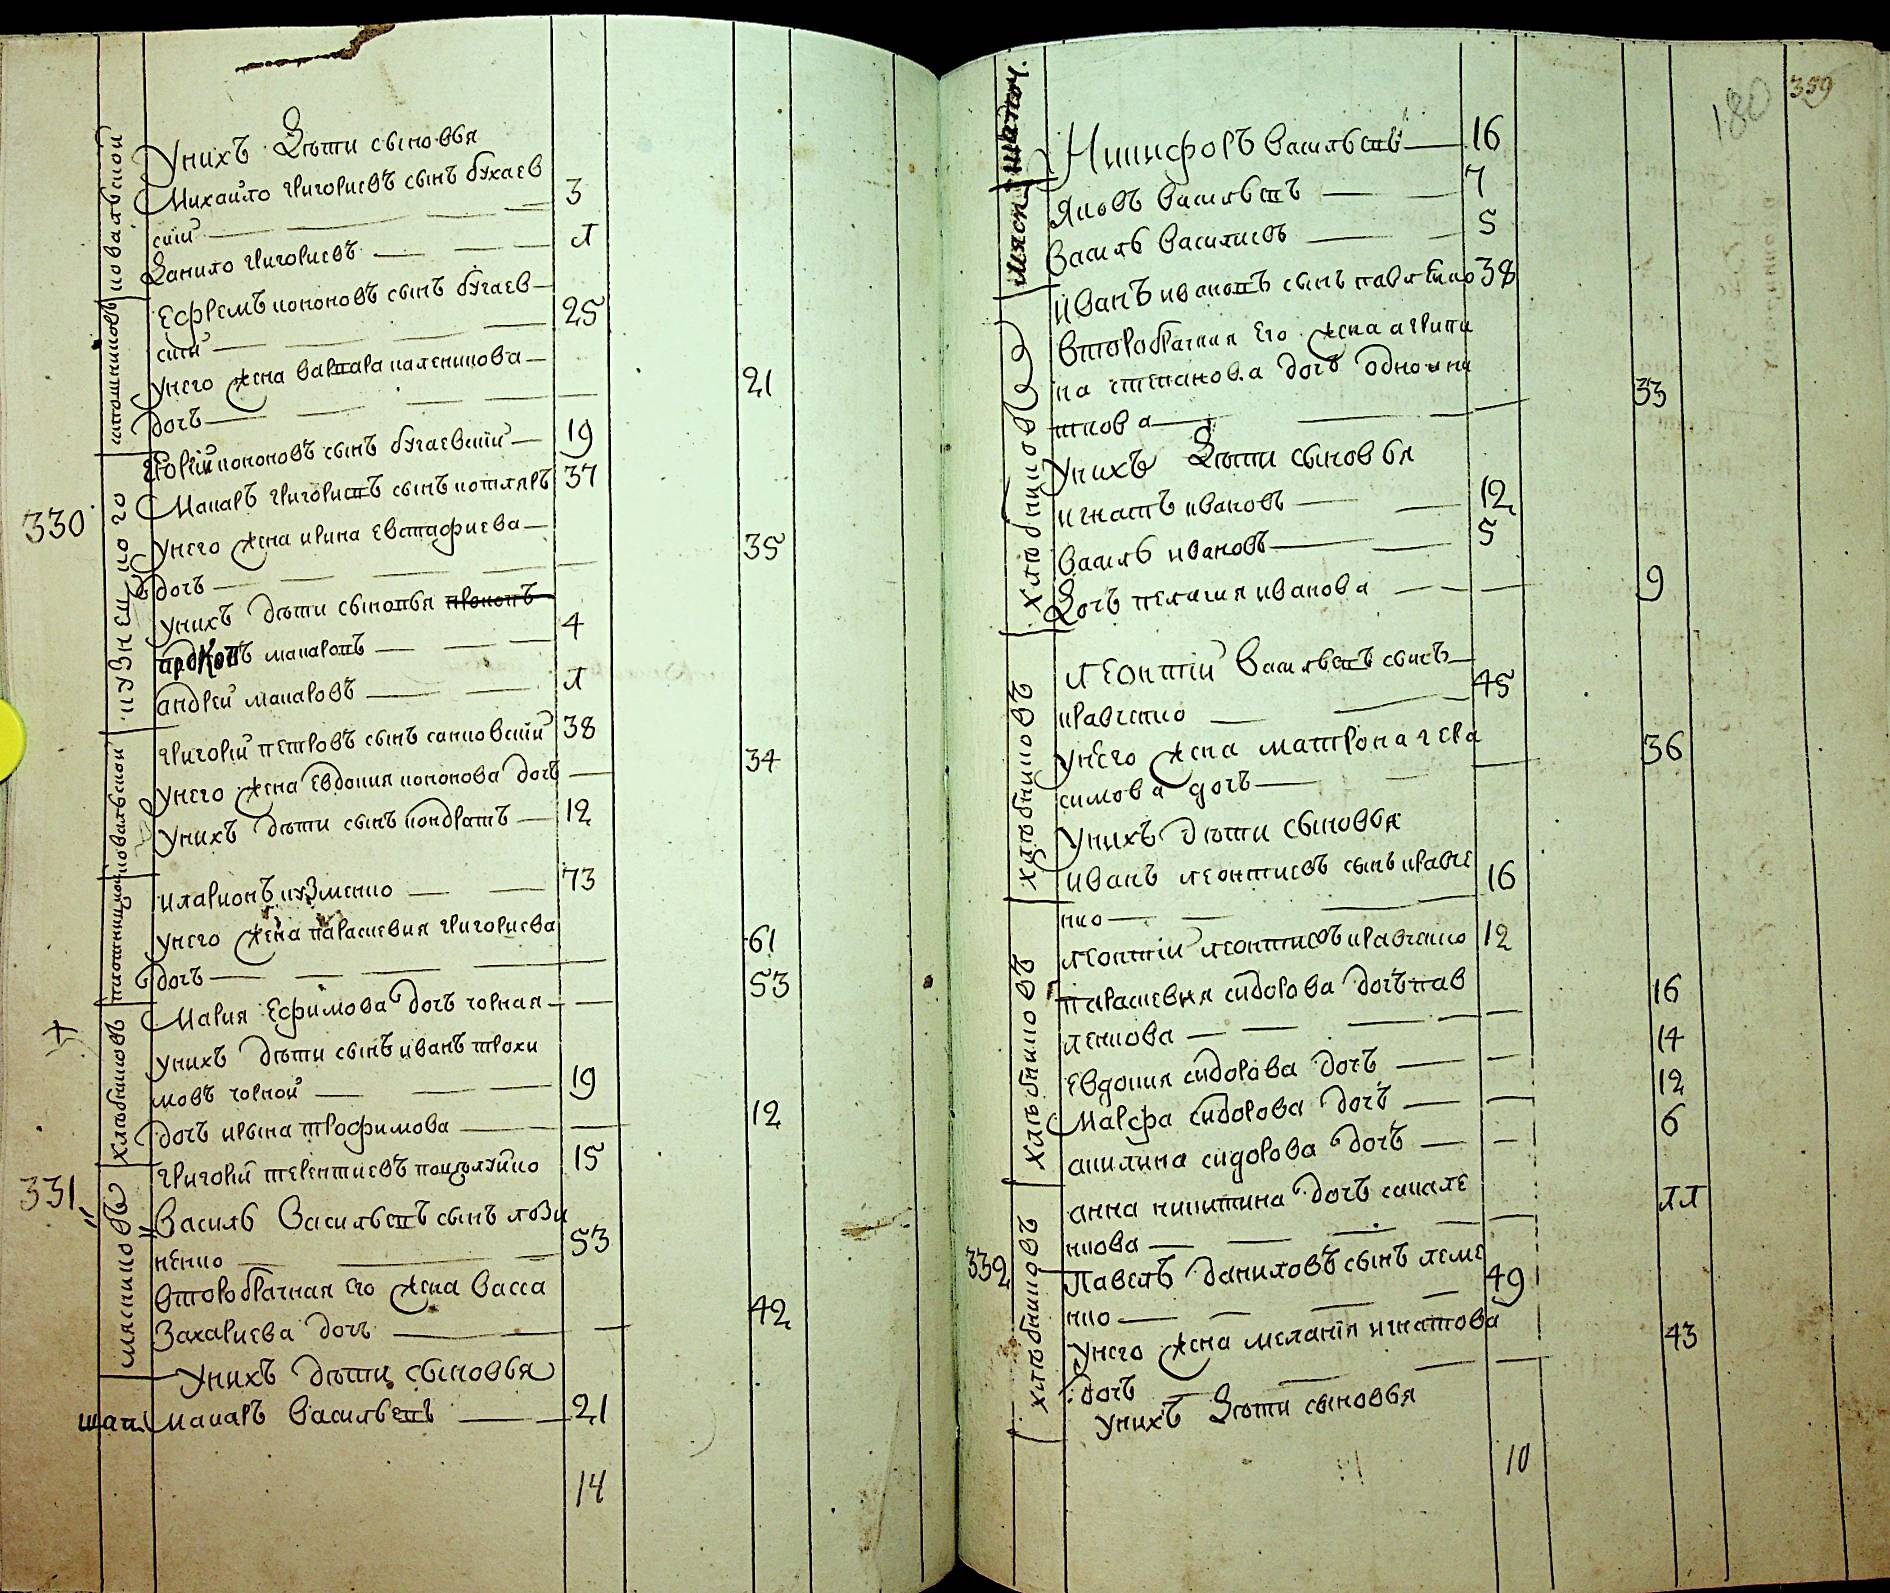 унихъ Дѣти сыновья
Михайло григориевъ сынъ бугаев
ский 3
Данило григориевъ л
Ефремъ кононовъ сынъ бугаев
ский 25
унего жена варвара каленикова
дочъ 21
Егорий кононовъ сынъ бугаевский 19
330 Макаръ григориевъ сынъ котляръ 37
унего жена ирина Евстафиева
дочъ 35
унихъ дѣти сыновья
прокопъ макаровъ 4
андрей макаровъ л
григорий петровъ сынъ сановский 38
унего жена Евдокия кононова дочъ 34
унихъ дѣти сынъ кондратъ 12
иларионъ кузменко 73
унего жена параскевия григориева
дочъ 61
Мария Ефимова дочъ чорная 53
унихъ дѣти сынъ иванъ трохи
мовъ чорной 19
дочъ ирына трофимова 12
григорий терентиевъ поцѣлуйко 15
331 Василь Васильевъ сынъ лози
ненко 53
второбрачная его жена васса
Захариева дочъ 42
унихъ дѣти сыновья
шап макаръ васильевъ 21
14
ковальской
шапошниковъ
кузнецкого
ковальской
плотницкой
хлѣбниковъ
мясниковъ
180 359
Никифоръ васильевъ 16
Яковъ васильевъ 7
василь василиевъ 5
иванъ ивановъ сынъ павленко 38
второбрачная его жена агрипи
на степанова дочъ
ткова 33
унихъ Дѣти сыновья
игнатъ ивановъ 12
василь ивановъ 5
Дочъ пелагия иванова 9
леонтий васильевъ сынъ
кравченко 45
унего жена матрона гера
симова дочъ 36
унихъ дѣти сыновья
иванъ леонтиевъ сынъ кравче
нко 16
леонтий леонтиевъ кравченко 12
параскевия сидорова дочъ пав
ленкова 16
евдокия сидорова дочъ 14
Марфа сидорова дочъ 12
акилина сидорова дочъ 6
анна никитина дочъ сакале
нкова лл
332 Павелъ даниловъ сынъ леме
нко 49
унего жена мелания игнатова
дочъ 43
унихъ Дѣти сыновья
10
шапоч.
мясн
хлѣбниковъ
хлѣбниковъ
хлѣбниковъ
хлѣбниковъ